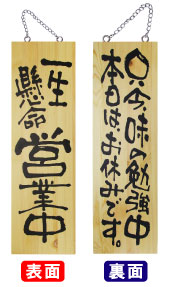 一生
懸命
営業中
只今味の勉強中
本日は、お休みです。
表面
裏面